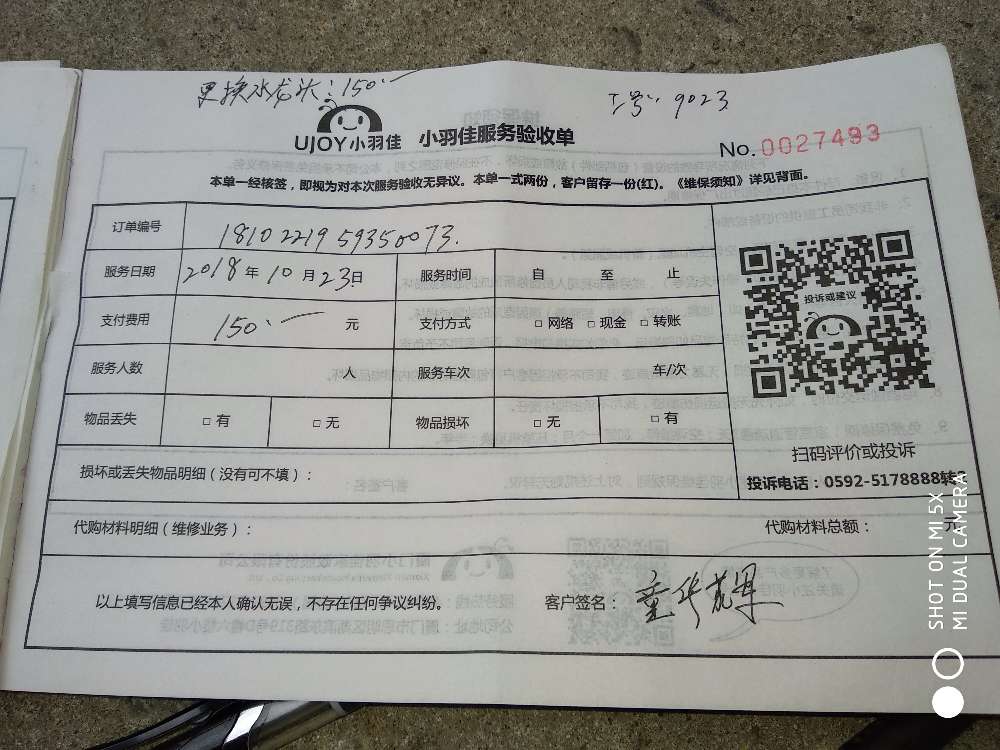 更换水龙头：150.—
工号：9023
UJOY小羽佳 小羽佳服务验收单
No.0027493
本单一经核签，即视为对本次服务验收无异议。本单一式两份，客户留存一份(红)。《维保须知》详见背面。
订单编号 1810221959350073.
服务日期 2018年10月23日 服务时间 自 至 止
支付费用 150.— 元 支付方式 □网络 □现金 □转账
投诉或建议
服务人数 人 服务车次 车/次
物品丢失 □有 □无 物品损坏 □无 □有
扫码评价或投诉
损坏或丢失物品明细（没有可不填）：
投诉电话：0592-5178888转3
代购材料明细（维修业务）： 代购材料总额： 元
以上填写信息已经本人确认无误，不存在任何争议纠纷。 客户签名：童华辉
SHOT ON MI 5X
MI DUAL CAMERA